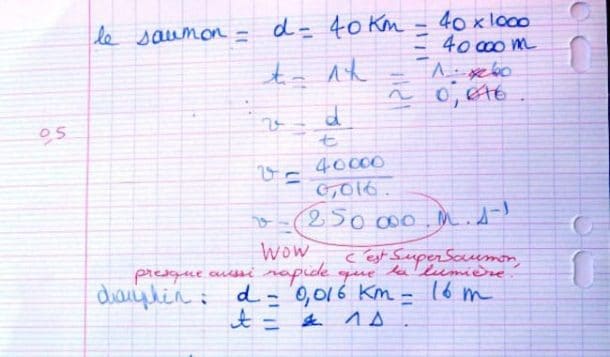 le saumon = d = 40 Km = 40 x 1000
= 40 000 m
t = 1h = 1 : 60
≈ 0,016.
0,5
v = d/t
v = 40000/0,016.
v = 250 000 . m . s⁻¹
WOW c'est SuperSaumon,
presque aussi rapide que la lumière.
dauphin : d = 0,016 Km = 16 m
t = 1 s .